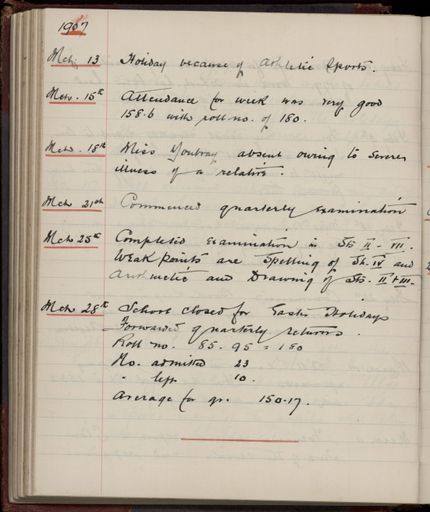 1907
Mch. 13 Holiday because of Athletic Sports.
Mch. 15th Attendance for week was very good
158.6 with roll no. of 180.
Mch. 18th Miss absent owing to severe
illness of a relative.
Mch 21st Commenced quarterly examination
Mch 25th Completed Examination in Sts II - VII.
Weak points are Spelling of St. IV and
Arithmetic and Drawing of Sts. II + III.
Mch 28th School closed for Easter Holidays
Forwarded quarterly returns.
Roll no. 85. 95 = 180
No. admitted 23
" left 10.
Average for qr. 150.17.